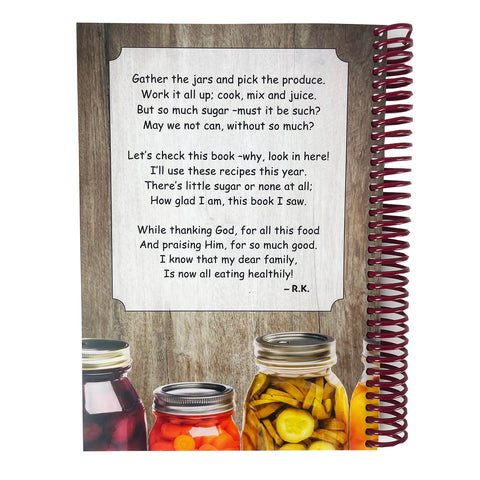 Gather the jars and pick the produce.
Work it all up; cook, mix and juice.
But so much sugar –must it be such?
May we not can, without so much?
Let's check this book –why, look in here!
I'll use these recipes this year.
There's little sugar or none at all;
How glad I am, this book I saw.
While thanking God, for all this food
And praising Him, for so much good.
I know that my dear family,
Is now all eating healthily!
– R.K.